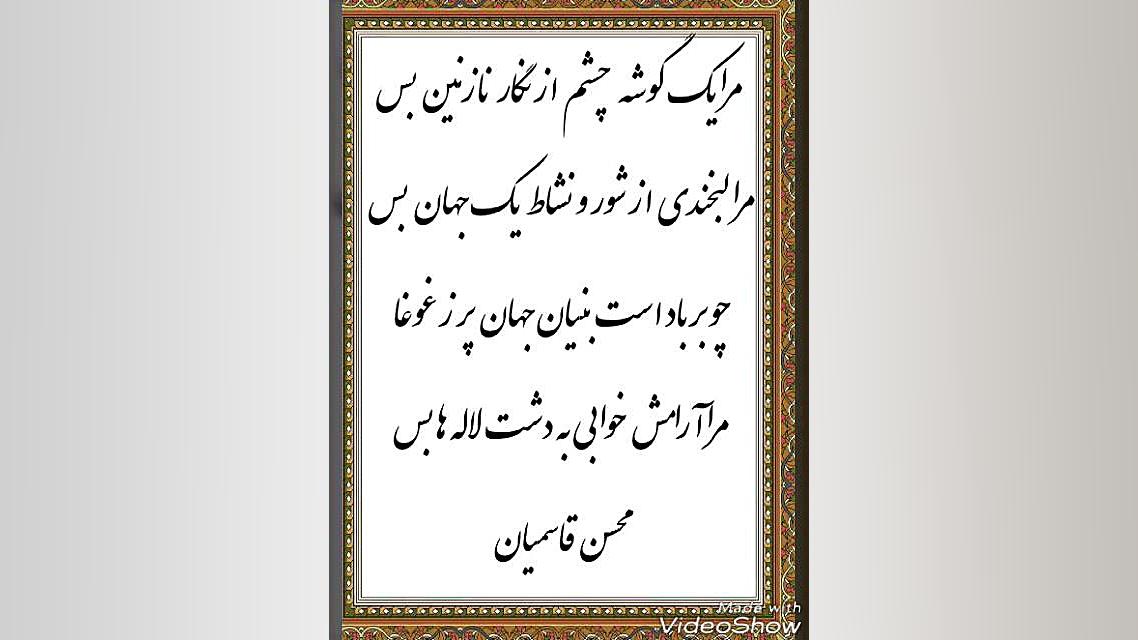 مرا یک گوشه چشم از نگار نازنین بس
مرا لبخندی از شور و نشاط یک جهان بس
چو بر باد است بنیان جهان پر ز غوغا
مرا آرامش خوابی به دشت لاله ها بس
محسن قاسمیان
Made with
VideoShow